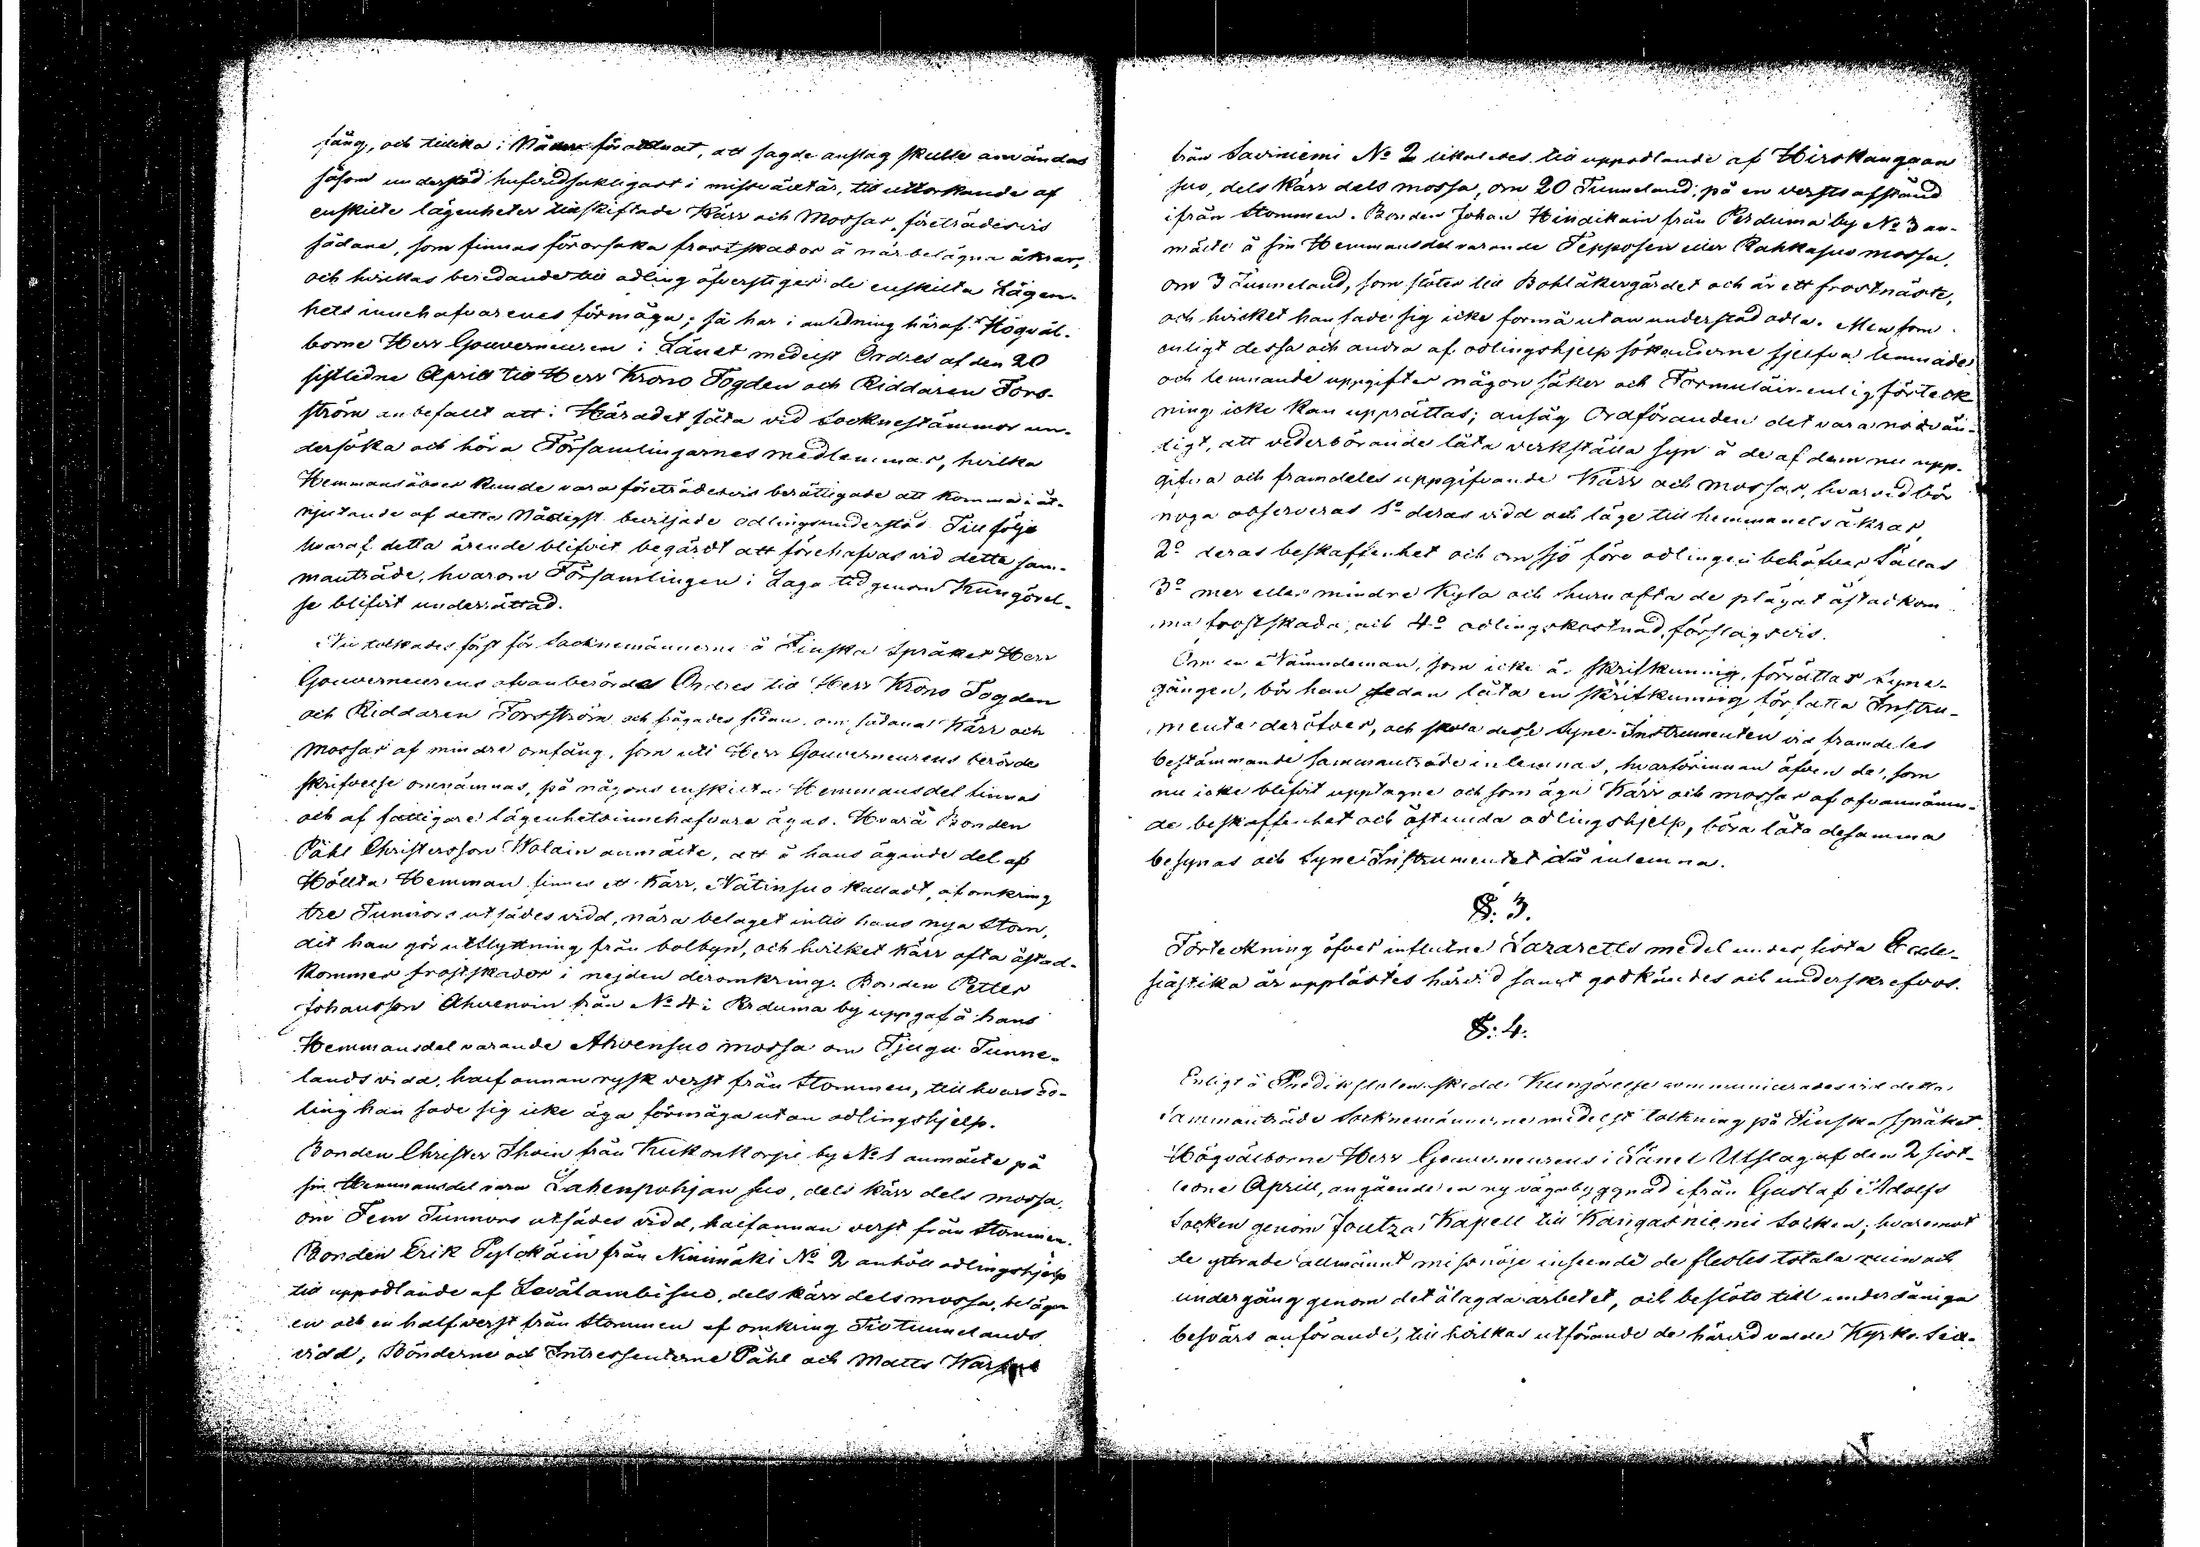 fång, och tillika i Nåder förordnat, att sagde anslag skulle användas
såsom understöd hufvudsakligast i missväxtår, till uttorkande af
enskilte lägenheter tillskiftade Kärr och Mossar, företrädesvis
sådane, som finnas förorsaka frostskador å närbelägna åkrar,
och hvilkas beredande till odling öfverstiger de enskilta Lägen-
hets innehafvarenes förmåga; så har i anledning häraf Högväl-
borne Herr Gouverneuren i Länet medelst Ordres af den 20
sistledne Aprill till Herr Krono Fogden och Riddaren Fors-
ström anbefallt att i Häradet låta vid Socknestämmor un-
dersöka och höra Församlingarnes medlemmar, hvilka
Hemmansåboer kunde vara företrädesvis berättigade att komma i åt-
njutande af detta Nådigst beviljade odlingsunderstöd. Till följe
hvaraf detta ärende blifvit begärdt att förehafvas vid detta sam-
manträde, hvarom Församlingen i Laga tid genom Kungörel-
se blifvit underrättad.
Nu tolkades först för Socknemännerne å Finska Språket Herr
Gouverneurens ofvanberörde Ordres till Herr Krono Fogden
och Riddaren Forsström och frågades sedan, om sådana Kärr och
Mossar af mindre omfång, som uti Herr Gouverneurens berörde
skrifvelse omnämnas, på någons enskilta Hemmansdel finnas
och af fattigare lägenhetsinnehafvare ägas. Hvarå Bonden
Påhl Christersson Walain anmälte, att å hans ägande del af
Höltta Hemman finnes ett Kärr, Nätinsuo kalladt, af omkring
tre Tunnors utsädes vidd, nära belaget intill hans nya Stom,
dit han gör utflyttning från bolbyn, och hvilket Kärr ofta åstad-
kommer frostskador i nejden deromkring. Bonden Petter
Johansson Ahvenain från No 4 i Perduma by uppgaf å hans
Hemmansdel varande Ahvensuo mossa om Tjugu Tunne-
lands vidd, half annan rysk verst från Stommen, till hvars od-
ling han sade sig icke äga förmåga utan odlingshjelp.
Bonden Christer Ihain från Kukonkorpi by No 1 anmälte på
sin Hemmansdel vara Lahenpohjan suo, dels kärr dels mossa,
om Fem Tunnors utsädes vidd, half annan verst från Stommen.
Bonden Erik Pylckäin från Ninimäki No 2 anhöll odlingshjelp
till uppodlande af Levälambisuo, dels kärr dels mossa, belägen
en och en half verst från Stommen af omkring Tio tunnelands
vidd; Bönderne och Intressenterne Påhl och Matts
från Saviniemi No 2 likaledes till uppodlande af Hirskangaan
suo, dels Kärr dels mossa, om 20 Tunneland, på en versts afstånd
ifrån Stommen. Bonden Johan Hindikain från Perduma by No 3 an-
mälte å sin Hemmansdel varande Tepposen eller Rahkasuo mossa,
om 3 Tunneland, som stöter till Bohlåkergärdet och är ett frostnäste,
och hvilket han sade sig icke förmå utan understöd odla. Men som
enligt dessa och andra af odlingshjelp sökanderne sjelfva lemnade
och lemnande uppgifter någon säker och Formulair-enlig förteck-
ning icke kan upprättas; ansåg Ordföranden det vara nödvän-
digt, att vederbörande låta verkställa syn å de af dem nu upp-
gifna och framdeles uppgifvande Kärr och mossar, hvarvid bör
noga observeras 1o deras vidd och läge till hemmanets åkrar,
2o deras beskaffenhet och om sjö före odlingen behöfver fällas
3o mer eller mindre Kyla och huru ofta de plägat åstadkom-
ma frostskada, och 4o odlingskostnad, förslagsvis.
Om en Nämndeman, som icke är skrifkunnig, förrättar Syne-
gången, bör han sedan låta en skrifkunnig författa Instru-
menta deröfver, och skola desse Syne-Instrumenten vid framdeles
bestämmande sammanträde inlemnas, hvarförinnan äfven de, som
nu icke blifvit upptagne och som äga Kärr och mossar af ofvannämn-
de beskaffenhet och åstunda odlingshjelp, böra låta desamma
besynas och Syne Instrumentet då inlemna.
§: 3.
Förteckning öfver influtne Lazaretts medel under sista Eccle-
siastika år upplästes härvid samt godkändes och underskrefvos.
§: 4.
Enligt å Predikstolen skedd Kungörelse communicerades vid detta
Sammanträde Socknemännerne medelst tolkning på Finska Språket
Högvälborne Herr Gouverneurens i Länet Utslag af den 2 sist-
ledne Aprill, angående en ny vägabyggnad ifrån Gustaf Adolfs
Socken genom Joutza Kapell till Kangasniemi Socken; hvaremot
de yttrade allmännt misnöje inseende de flestes totala ruin och
undergång genom det ålagda arbetet, och beslöto till underdåniga
besvärs anförande, till hvilkas utförande de härvid valde Kyrko Sex-